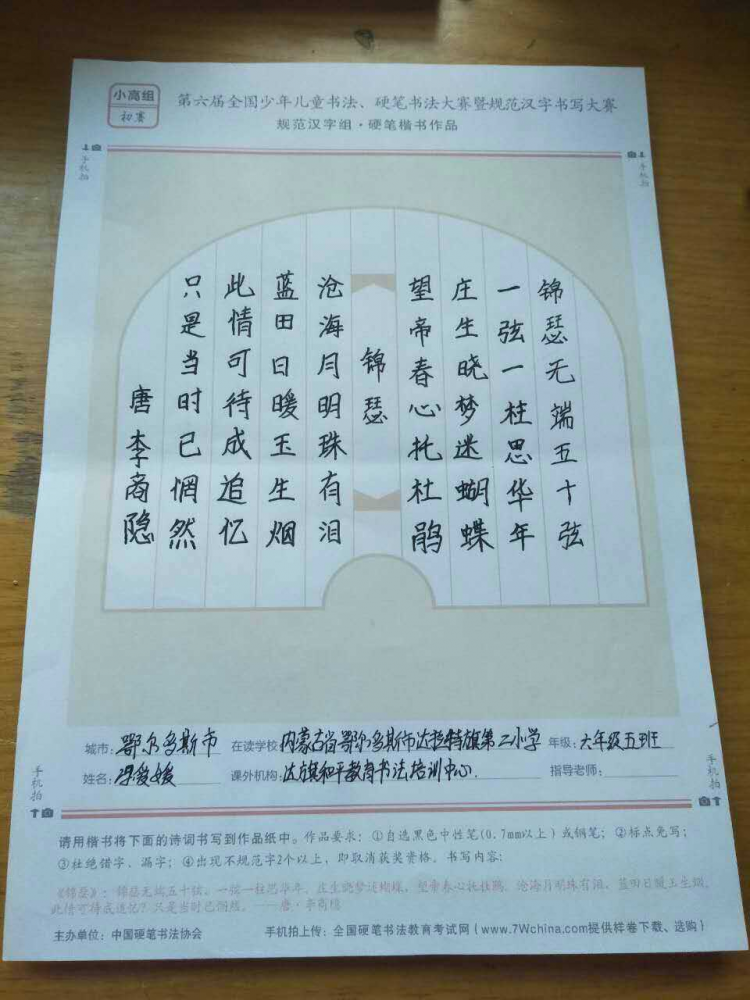 小高组
初赛
第六届全国少年儿童书法、硬笔书法大赛暨规范汉字书写大赛
规范汉字组·硬笔楷书作品
手机拍
手机拍
锦瑟无端五十弦
一弦一柱思华年
庄生晓梦迷蝴蝶
望帝春心托杜鹃
锦瑟
沧海月明珠有泪
蓝田日暖玉生烟
此情可待成追忆
只是当时已惘然
唐李商隐
城市：鄂尔多斯市 在读学校：内蒙古省鄂尔多斯市达拉特旗第二小学 年级：六年级五班
姓名： 课外机构：达旗和平教育书法培训中心. 指导老师：
手机拍
手机拍
请用楷书将下面的诗词书写到作品纸中。作品要求：①自选黑色中性笔(0.7mm以上)或钢笔；②标点免写；
③杜绝错字、漏字；④出现不规范字2个以上，即取消获奖资格。书写内容：
《锦瑟》：锦瑟无端五十弦，一弦一柱思华年。庄生晓梦迷蝴蝶，望帝春心托杜鹃。沧海月明珠有泪，蓝田日暖玉生烟。
此情可待成追忆？只是当时已惘然。——唐·李商隐
主办单位：中国硬笔书法协会 手机拍上传：全国硬笔书法教育考试网（www.7Wchina.com提供样卷下载、选购）